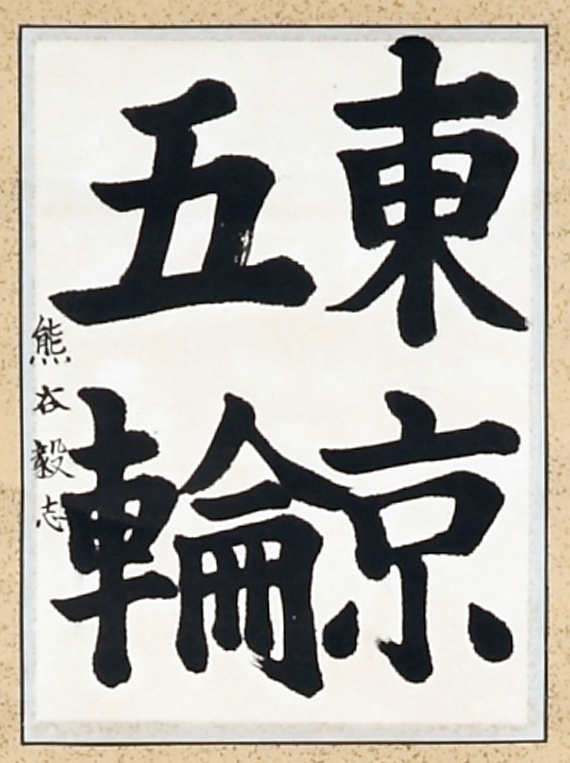 東京
五輪
熊谷毅志